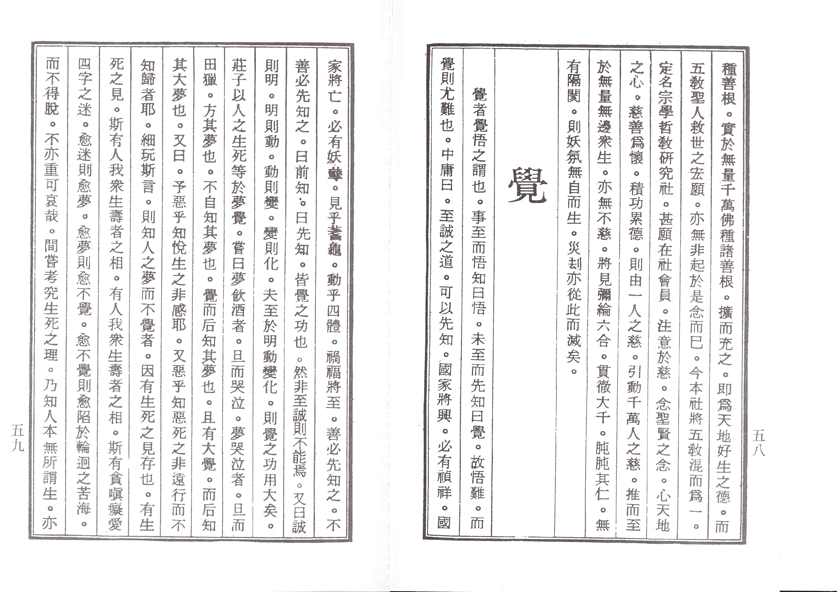 種善根。實於無量千萬佛種諸善根。擴而充之。即爲天地好生之德。而
五敎聖人救世之宏願。亦無非起於是念而巳。今本社將五敎混而爲一。
定名宗學哲敎硏究社。甚願在社會員。注意於慈。念聖賢之念。心天地
之心。慈善爲懷。積功累德。則由一人之慈。引動千萬人之慈。推而至
於無量無邊衆生。亦無不慈。將見彌綸六合。貫徹大千。肫肫其仁。無
有隔閡。則妖氛無自而生。災刦亦從此而滅矣。
覺
覺者覺悟之謂也。事至而悟知曰悟。未至而先知曰覺。故悟難。而
覺則尤難也。中庸曰。至誠之道。可以先知。國家將興。必有禎祥。國
五八
家將亡。必有妖孽。見乎蓍龜。動乎四體。禍福將至。善必先知之。不
善必先知之。曰前知。曰先知。皆覺之功也。然非至誠則不能焉。又曰誠
則明。明則動。動則變。變則化。夫至於明動變化。則覺之功用大矣。
莊子以人之生死等於夢覺。嘗曰夢飲酒者。旦而哭泣。夢哭泣者。旦而
田獵。方其夢也。不自知其夢也。覺而后知其夢也。且有大覺。而后知
其大夢也。又曰。予惡乎知悅生之非感耶。又惡乎知惡死之非遠行而不
知歸者耶。細玩斯言。則知人之夢而不覺者。因有生死之見存也。有生
死之見。斯有人我衆生壽者之相。有人我衆生壽者之相。斯有貪嗔癡愛
四字之迷。愈迷則愈夢。愈夢則愈不覺。愈不覺則愈陷於輪迴之苦海。
而不得脫。不亦重可哀哉。間嘗考究生死之理。乃知人本無所謂生。亦
五九